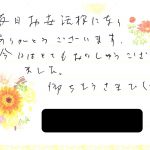 毎日お世話様になり
ありがとうございます。
今日はとてもおいしゅうござい
ました。
御ちそうさまでした